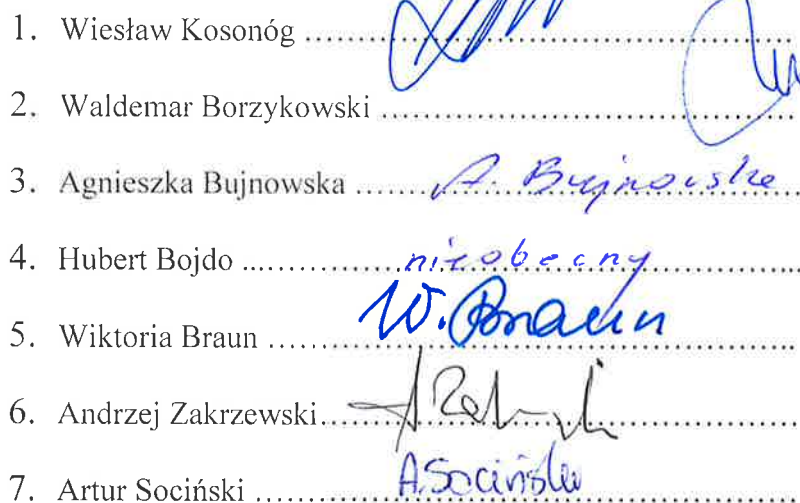 1. Wiesław Kosonóg
2. Waldemar Borzykowski
3. Agnieszka Bujnowska A. Bujnowska
4. Hubert Bojdo nieobecny
5. Wiktoria Braun W. Braun
6. Andrzej Zakrzewski
7. Artur Sociński A. Sociński